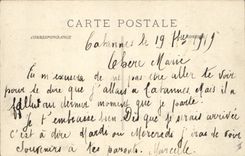 CARTE POSTALE
CORRESPONDANCE
Cabannes le 19 1915
Chere Marie
Tu m'excusera de ne pas etre aller te voir
pour te dire que j'allais a Cabannes. Mais il a
fallut au dernier moment que je parte.
Je t'embrasse bien. Dès que je serais arrivée
c'est à dire Mardi ou Mercredi j'irai te voir
Souvenirs à tes parents. Marcelle